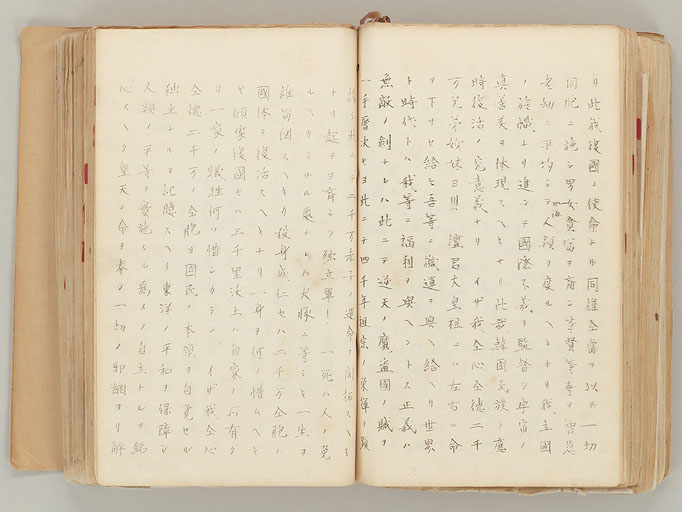 リ此我復國ノ使命ナリ同權全富ヲ以テ一切
同胞ニ施シ男女貧富ヲ齊シ等賢等壽ヲ智愚
老幼ニ平均シテ四海人類ヲ度ルヘキナリ我立國
ノ旗幟ナリ進ンテ國際不義ヲ監督シ宇宙ノ
眞善美ヲ体現スヘキナリ此我韓國民族ノ應
時復活ノ究意義ナリ イザ我全心全德二千
万兄弟姉妹ヨ 檀君大皇祖ニハ左右ニ命
ヲ下サセ給ヒ吾等ニ機運ヲ與ヘ給ヘリ世界
ト時代トハ我等ニ福利ヲ與ヘントス正義ハ
無敵ノ劍ナレハ此ニテ逆天ノ魔盜國ノ賊ヲ
一手屠決セヨ此ニテ四千年祖宗ノ榮輝ヲ顯
此ニテ二千万赤子ノ運命ヲ開拓スヘキ
ナリ起ヨ獨立軍 一死ハ人ノ免
ルヘカラサル處ナレハ犬豚ニ等シキ一生ヲ
誰苟圖スヘキヤ殺身成仁セハ二千万同胞ハ
國体ヲ復活スヘキナリ一身ヲ何ソ惜ムヘキ
ヤ傾家復國セハ三千里沃土ハ自家ノ所有ナ
リ一家ノ犧牲何ソ惜シカラン イザ我全心
全德二千万ノ同胞ヨ國民ノ本領ヲ自覺セル
獨立ナルヲ記憶スヘク東洋ノ平和ヲ保障シ
人類ノ平等ヲ實施スル爲メノ自立ナルヲ銘
心スヘク皇天ノ命ヲ奉シ一切ノ邪網ヨリ解